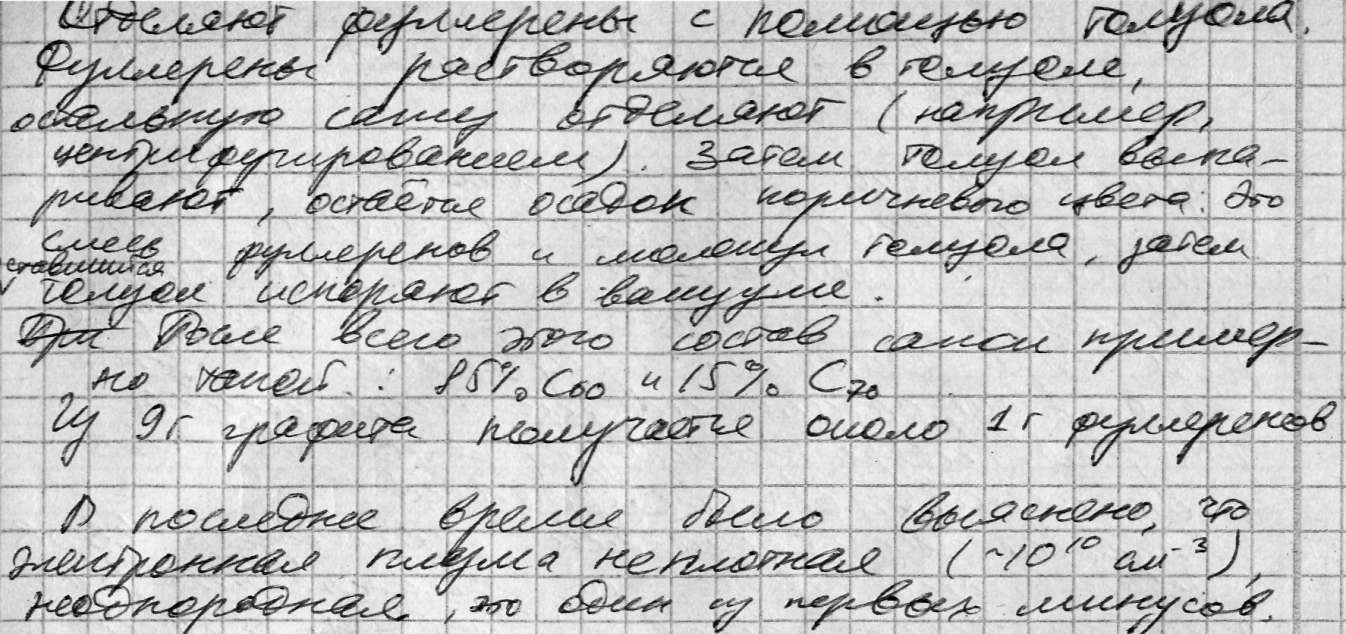 Отделяют фуллерены с помощью толуола.
Фуллерены растворяются в толуоле,
остальную сажу отделяют (например,
центрифугированием). Затем толуол выпа-
ривают, остаётся осадок коричневого цвета. Это
смесь фуллеренов и молекул толуола, затем
оставшийся
толуол испаряют в вакууме.
При После всего этого состав сажи пример-
но такой: 85% C60 и 15% C70
Из 9г графита получается около 1г фуллеренов
В последнее время было выяснено, что
электронная плазма неплотная (~10¹⁰ см⁻³),
неоднородная, это один из первых минусов.